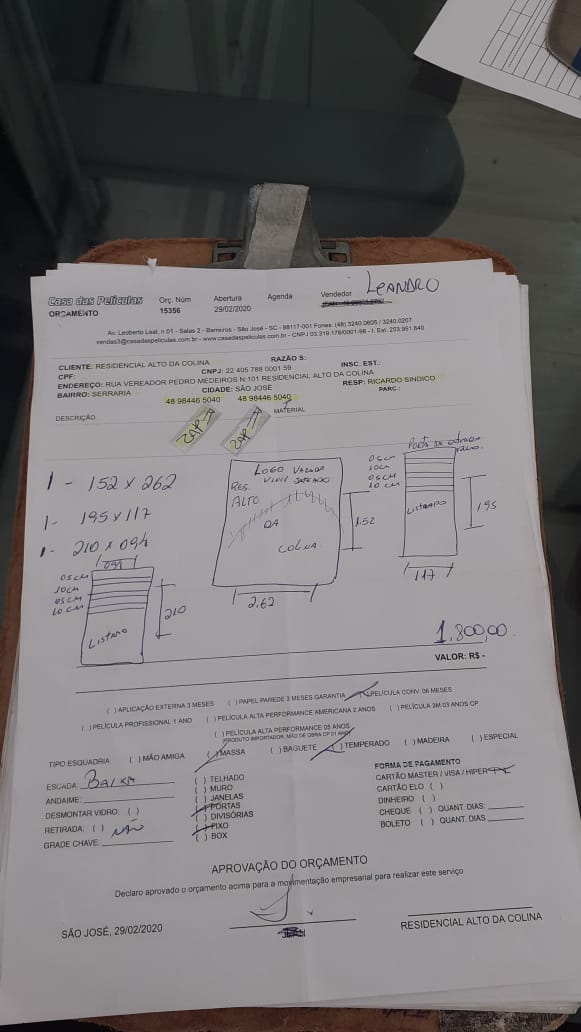 Casa das Películas
ORÇAMENTO
Orç. Núm
15356
Abertura
29/02/2020
Agenda
Vendedor
LEANDRO
Av. Leoberto Leal, n 01 - Salas 2 - Barreiros - São José - SC - 88117-001 Fones: (48) 3240.0605 / 3240.0207
vendas3@casadaspeliculas.com.br - www.casadaspeliculas.com.br - CNPJ 03.319.178/0001-98 - I. Est. 253.951.640
CLIENTE: RESIDENCIAL ALTO DA COLINA
RAZÃO S:
CPF:
CNPJ: 22 405 788 0001 59
INSC. EST.:
ENDEREÇO: RUA VEREADOR PEDRO MEDEIROS N:101 RESIDENCIAL ALTO DA COLINA
BAIRRO: SERRARIA
CIDADE: SÃO JOSÉ
RESP: RICARDO SINDICO
48 98446 5040
48 98446 5040
PARC.:
DESCRIÇÃO
MATERIAL
ZAP
ZAP
1 - 152 x 262
1 - 195 x 117
1 - 210 x 094
LOGO VAZADO
VINIL JATEADO
RES.
ALTO
DA
COLINA
1.52
2.62
PORTA DE ENTRADA
05 CM
10 CM
05 CM
10 CM
LISTRADO
195
117
094
05 CM
10 CM
05 CM
10 CM
LISTRADO
210
1.800,00
VALOR: R$ -
( ) APLICAÇÃO EXTERNA 3 MESES ( ) PAPEL PAREDE 3 MESES GARANTIA ( ) PELÍCULA CONV. 06 MESES
( ) PELÍCULA PROFISSIONAL 1 ANO ( ) PELÍCULA ALTA PERFORMANCE AMERICANA 2 ANOS ( ) PELÍCULA 3M 03 ANOS CP
( ) PELÍCULA ALTA PERFORMANCE 05 ANOS
PRODUTO IMPORTADOR, MÃO DE OBRA CP 01 ANO
TIPO ESQUADRIA ( ) MÃO AMIGA ( ) MASSA ( ) BAGUETE ( ) TEMPERADO ( ) MADEIRA ( ) ESPECIAL
ESCADA: BAIXA
ANDAIME:
DESMONTAR VIDRO: ( )
RETIRADA: ( ) NÃO
GRADE CHAVE:
( ) TELHADO
( ) MURO
( ) JANELAS
( ) PORTAS
( ) DIVISÓRIAS
( ) FIXO
( ) BOX
FORMA DE PAGAMENTO
CARTÃO MASTER / VISA / HIPER
CARTÃO ELO ( )
DINHEIRO ( )
CHEQUE ( ) QUANT. DIAS:
BOLETO ( ) QUANT. DIAS
APROVAÇÃO DO ORÇAMENTO
Declaro aprovado o orçamento acima para a movimentação empresarial para realizar este serviço
SÃO JOSÉ, 29/02/2020
RESIDENCIAL ALTO DA COLINA